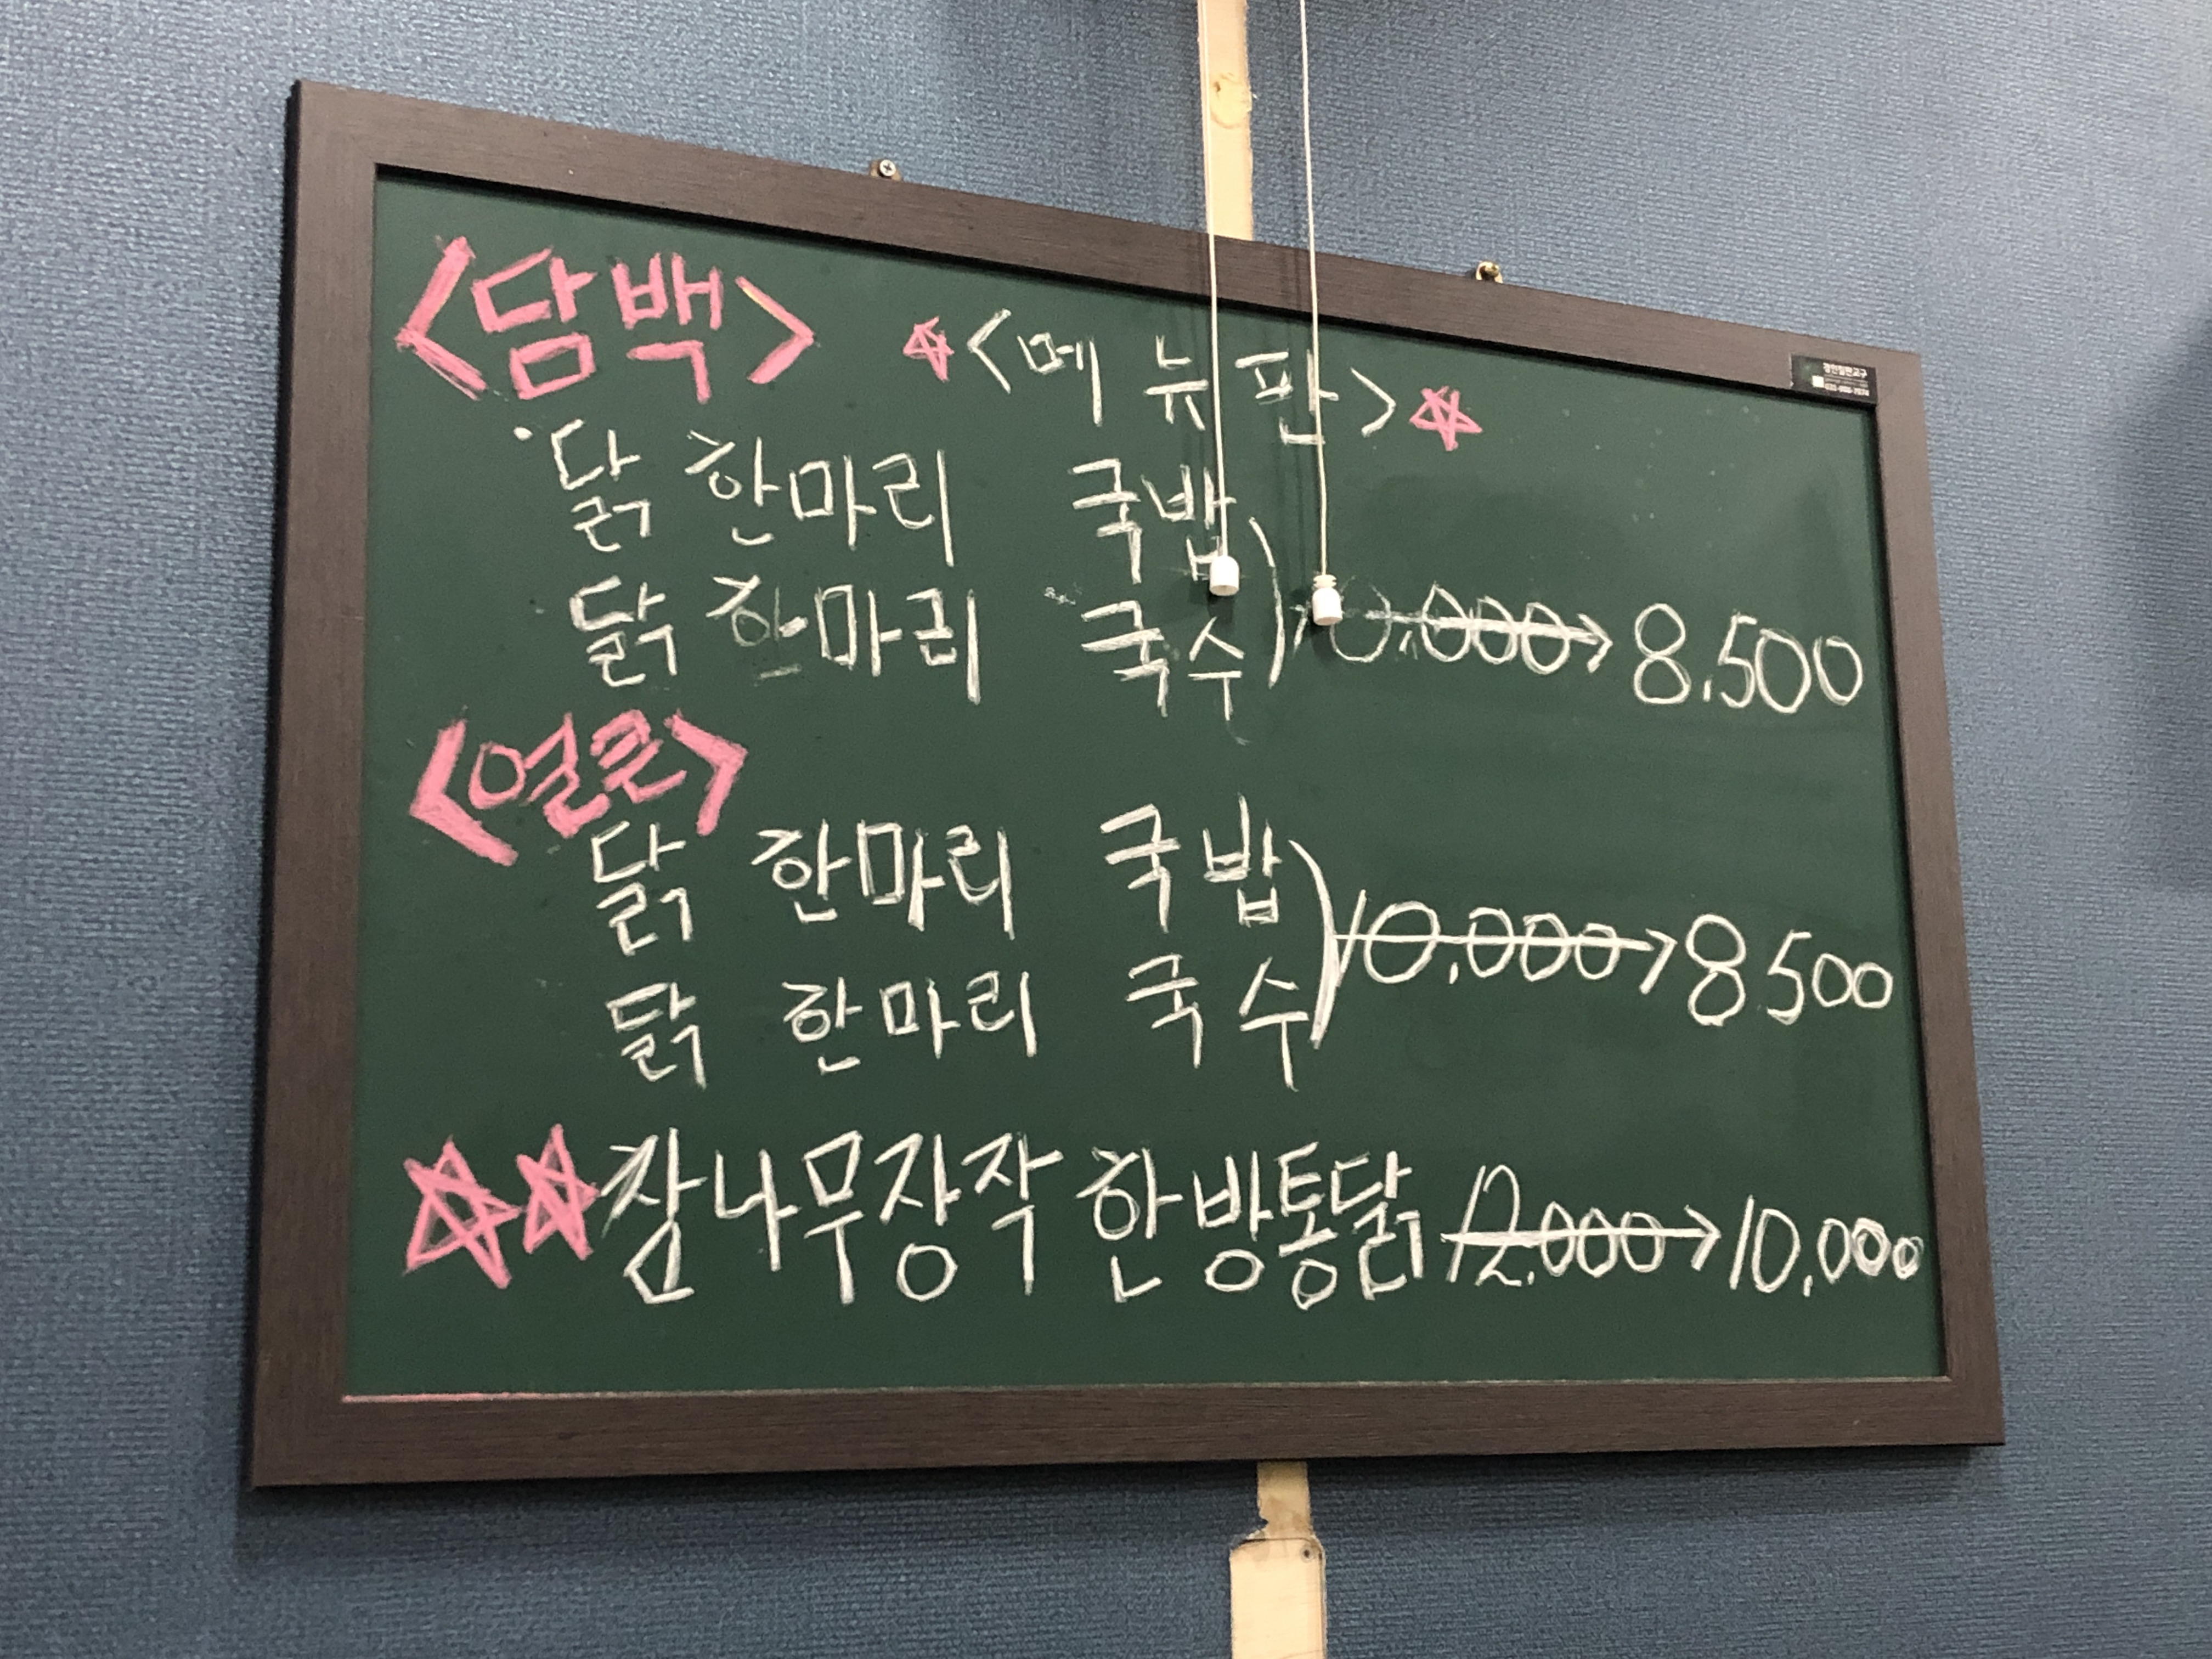 <담백>
☆<메뉴판>☆
닭 한마리 국밥
닭 한마리 국수) 10.000→8.500
<얼큰>
닭 한마리 국밥
닭 한마리 국수) 10.000→8.500
☆☆참나무장작 한방통닭 12.000→10.000